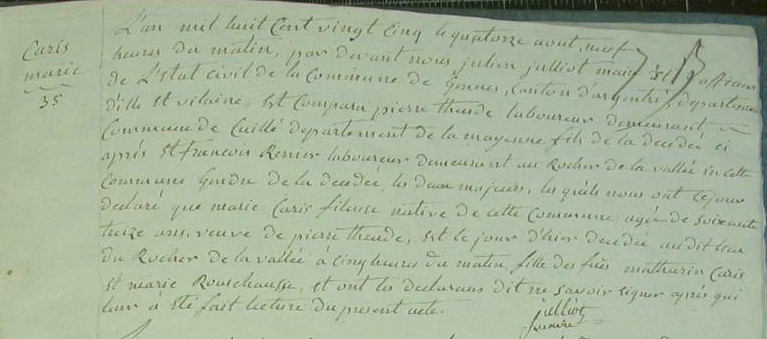 L'an mil huit Cent vingt Cinq le quatorze aout, neuf
Caris
marie
35
heures du matin, par devant nous julien julliot maire et officier
de L'Etat Civil de la Commune de Gennes, Canton d'argentré, departement
d'ille et vilaine, est Comparu pierre theude laboureur demeurant
Commune de Cuillé departement de la mayenne fils de la decedée ci
après et francois Renier laboureur demeurant au Rocher de la vallée en cette
Commune Gendre de la decedée, les deux majeurs, les quels nous ont cejour
declaré que marie Caris fileuse native de cette Commune agée de soixante
treize ans, veuve de pierre theude, est le jour d'hier decedée au dit lieu
du Rocher de la vallée à cinq heures du matin, fille des fûs mathurin Caris
et marie Rouschausse, et ont les declarans dit ne savoir signer après qui
leur à été fait lecture du present acte.
julliot
maire